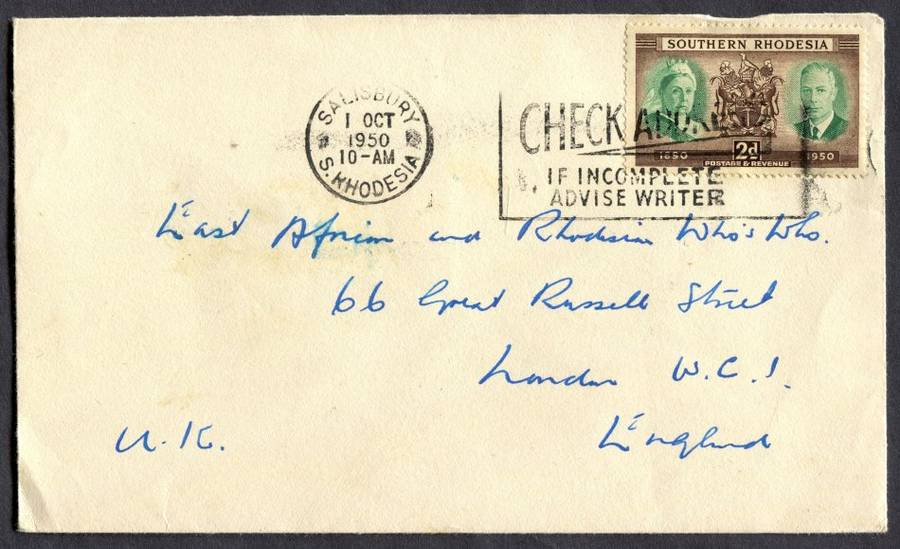 SOUTHERN RHODESIA
1850 2d 1950
POSTAGE & REVENUE
SALISBURY
1 OCT
1950
10-AM
S. RHODESIA
CHECK ADDRE
IF INCOMPLETE
ADVISE WRITER
East African and Rhodesian Who's Who.
66 Great Russell Street
London W.C.1.
England
U.K.